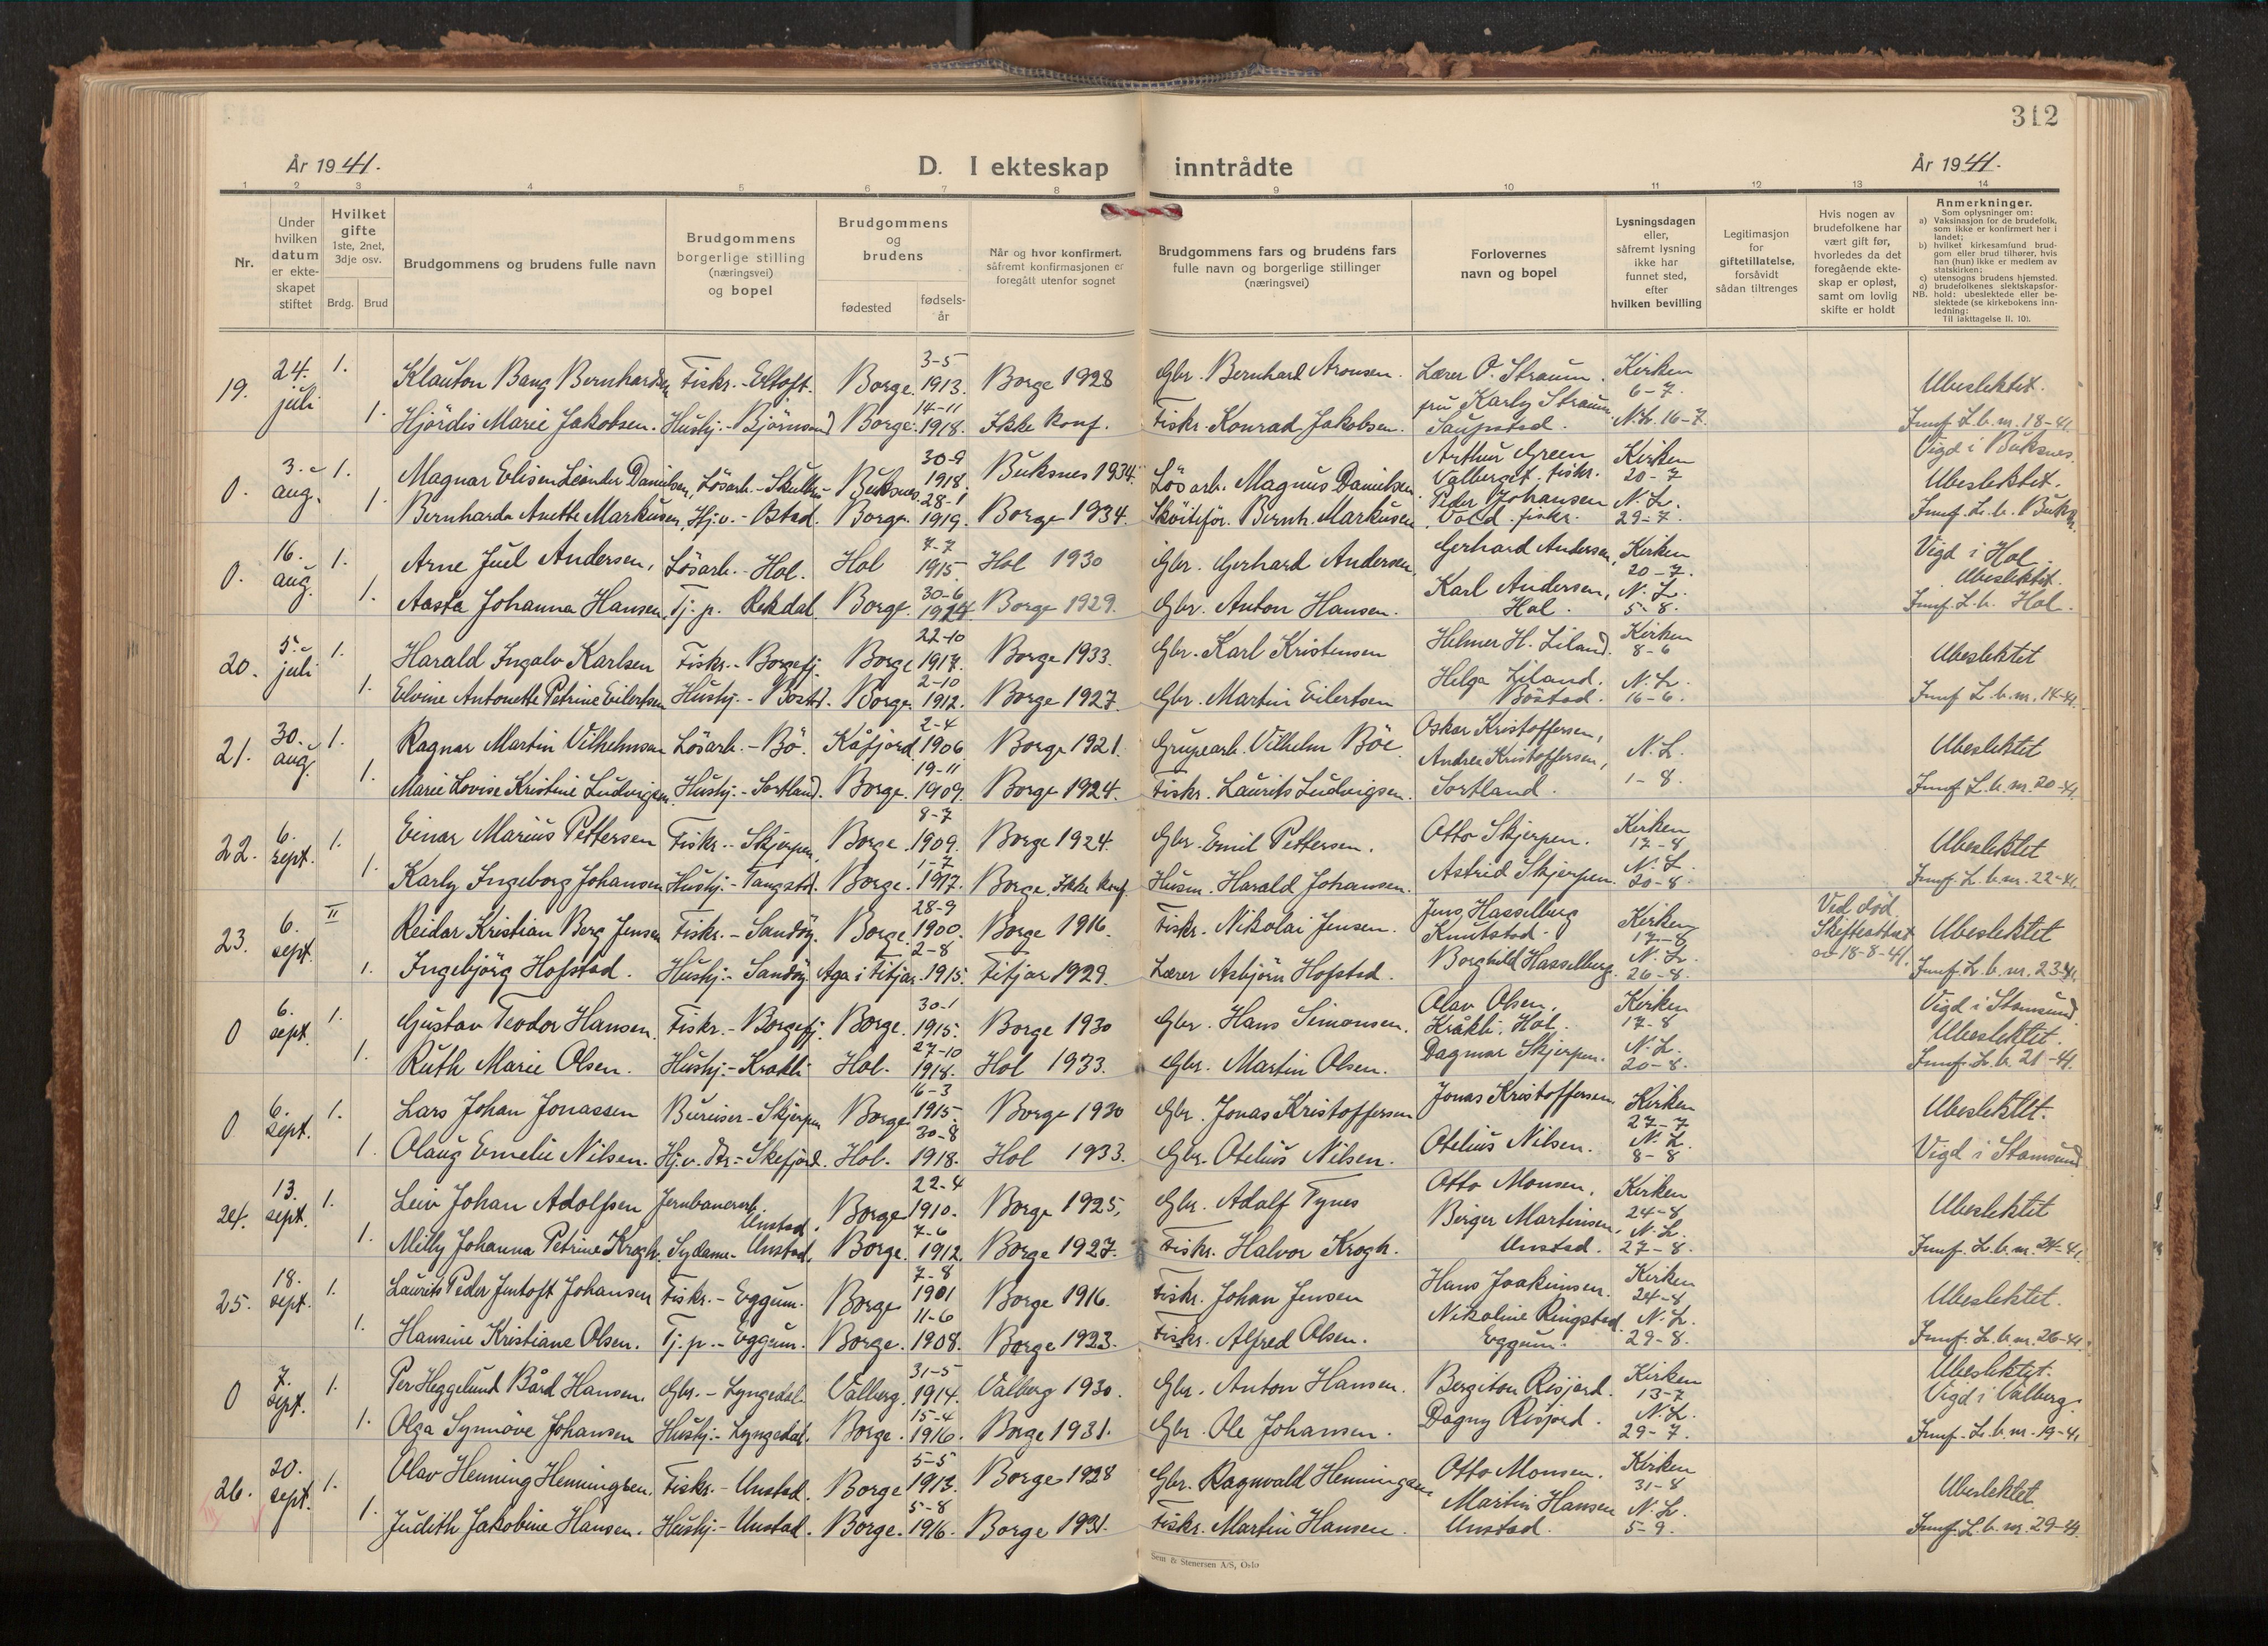 312
År 1941.
D. I ekteskap inntrådte
År 1941.
1 2 3 4 5 6 7 8 9 10 11 12 13 14
Nr.
Under hvilken datum er ekteskapet stiftet
Hvilket gifte 1ste, 2net, 3dje osv.
Brdg. Brud
Brudgommens og brudens fulle navn
Brudgommens borgerlige stilling (næringsvei) og bopel
Brudgommens og brudens
fødested
fødsels-år
Når og hvor konfirmert, såfremt konfirmasjonen er foregått utenfor sognet
Brudgommens fars og brudens fars fulle navn og borgerlige stillinger (næringsvei)
Forlovernes navn og bopel
Lysningsdagen eller, såfremt lysning ikke har funnet sted, efter hvilken bevilling
Legitimasjon for giftetillatelse, forsåvidt sådan tiltrenges
Hvis nogen av brudefolkene har vært gift før, hvorledes da det foregående ekteskap er opløst, samt om lovlig skifte er holdt
Anmerkninger.
Som oplysninger om:
a) Vaksinasjon for de brudefolk, som ikke er konfirmert her i landet;
b) hvilket kirkesamfund brudgom eller brud tilhører, hvis han (hun) ikke er medlem av statskirken;
c) utensogns brudens hjemsted.
d) brudefolkenes slektskapsforhold: ubeslektede eller beslektede (se kirkebokens innledning:
NB.
Til iakttagelse II. 10).
19. 24. juli 1. Klauton Bang Bernhardsen Fiskr. - Eltoft. Borge. 3-5 1913. Borge 1928 Gbr. Bernhard Aronsen. Lærer O. Straum. Kirken 6-7. Ubeslektet.
1. Hjördis Marie Jakobsen. Hushj. - Björnsand Borge. 14-11 1918. Ikke konf. Fiskr. Konrad Jakobsen. fru Karly Straum. Saupstad. N.L. 16-7. Innf. L.b. nr. 18-41.
0. 3. aug. 1. Magnar Elisen Leander Danielsen, Lösarb. - Buksnes. 30-9 1918. Buksnes 1934. Lösarb. Magnus Danielsen. Arthur Green Valberget, fiskr. Kirken 20-7 Vigd i Buksnes. Ubeslektet.
1. Bernharda Anette Markusen, Hj.v. - Ostad. Borge. 28-1 1919. Borge 1934. Sköitefør. Bernh. Markusen Peder Johansen Vold. fiskr. N.L. 29-7. Innf. L.b. Buksn.
0. 16. aug. 1. Arne Juel Andersen, Lösarb. - Hol. Hol 7-7 1915. Hol 1930 Gbr. Gerhard Andersen. Gerhard Andersen, Kirken 20-7. Vigd i Hol. Ubeslektet.
1. Aasta Johanna Hansen. Tj.p. Rekdal. Borge. 30-6 1914. Borge 1929. Gbr. Anton Hansen. Karl Andersen, Hol. N.L. 5-8. Innf. L.b. Hol.
20. 5. juli 1. Harald Ingalv Karlsen Fiskr. - Borgefj. Borge 22-10 1917. Borge 1933. Gbr. Karl Kristensen Helmer H. Liland. Kirken 8-6 Ubeslektet
1. Elvine Antonette Petrine Eilertsen Hushj. - Bostd. Borge. 2-10 1912. Borge 1927. Gbr. Martin Eilertsen Helga Liland. Böstad. N.L. 16-6. Innf L.b. nr. 14-41.
21. 30. aug. 1. Ragnar Martin Vilhelmsen Lösarb. - Bö. Kåfjord 2-4 1906. Borge 1921. Grupearb. Vilhelm Böe Oskar Kristoffersen, Ubeslektet
1. Marie Lovise Kristine Ludvigsen. Hushj. - Sortland. Borge. 19-11 1909. Borge 1924. Fiskr. Laurits Ludvigsen. Andrea Kristoffersen, Sortland. N.L. 1-8. Innf L.b. nr. 20-41.
22. 6. sept. 1. Einar Marius Pettersen Fiskr. - Skjerpen, Borge. 8-7 1909. Borge 1924. Gbr. Emil Pettersen. Otto Skjerpen. Kirken 17-8 Ubeslektet
1. Karly Ingeborg Johansen Hushj. - Tangstd. Borge. 1-7 1917. Borge. Ikke konf. Husm. Harald Johansen. Astrid Skjerpen. N.L. 20-8. Innf. L.b. nr. 22-41.
23. 6. sept. II Reidar Kristian Berg Jensen Fiskr. - Sandöy. Borge. 28-9 1900. Borge 1916. Fiskr. Nikolai Jensen. Jens Hasselberg Knutstad. Kirken 17-8 Ved död Skifteattest av 18-8-41. Ubeslektet
1. Ingebjörg Hofstad. Hushj. - Sandöy. Aga i Fitjar. 2-8 1915. Fitjar 1929. Lærer Asbjörn Hofstad. Borghild Hasselberg. N.L. 26-8. Innf. L.b. nr. 23-41.
0 6. sept. 1. Gustav Teodor Hansen. Fiskr. - Borgefj. Borge. 30-1 1915. Borge 1930 Gbr. Hans Simonsen. Olav Olsen, Kråkli. Hol. Kirken 17-8 Vigd i Stamsund. Ubeslektet.
1. Ruth Marie Olsen. Hushj. - Krakli Hol. 27-10 1918. Hol 1933. Gbr. Martin Olsen. Dagmar Skjerpen. N.L. 20-8. Innf. L.b. 21-41.
0 6. sept. 1. Lars Johan Jonassen Bureiser - Skjerpen Borge 16-3 1915. Borge 1930 Gbr. Jonas Kristoffersen Jonas Kristoffersen. Kirken 27-7 Ubeslektet.
1. Olaug Emelie Nilsen. Hj.v. Skefjord. Hol. 30-8 1918. Hol 1933. Gbr. Otelius Nilsen. Otelius Nilsen. N.L. 8-8 Vigd i Stamsund
24. 13. sept. 1. Leiv Johan Adolfsen Jernbanearb. Unstad. Borge 22-4 1910. Borge 1925, Gbr. Adolf Tynes Otto Monsen, Kirken 24-8 Ubeslektet
1. Milly Johanna Petrine Krogh. Sydame - Unstad. Borge. 7-6 1912. Borge 1927. Fiskr. Halvor Krogh. Birger Martinsen, Unstad. N.L. 27-8. Innf. L.b. nr. 24-41.
25. 18. sept. 1. Laurits Peder Jentoft Johansen Fiskr. - Eggum. Borge 7-8 1901 Borge 1916. Fiskr. Johan Jensen Hans Joakimsen. Kirken 24-8 Ubeslektet.
1. Hansine Kristiane Olsen. Tj.p. - Eggum. Borge. 11-6 1908. Borge 1923. Fiskr. Alfred Olsen. Nikoline Ringstad. Eggum. N.L. 29-8. Innf. L.b. nr. 26-41.
0 7. sept. 1. Per Heggelund Bård Hansen. Gbr. - Lyngedal. Valberg. 31-5 1914. Valberg 1930. Gbr. Anton Hansen. Bergiton Risjord. Kirken 13-7 Ubeslektet. Vigd i Valberg.
1. Olga Synnöve Johansen Hushj. - Lyngedal. Borge. 15-4 1916. Borge 1931. Gbr. Ole Johansen. Dagny Risjord. N.L. 29-7. Innf. L.b. nr. 19-41
26. 20. sept. 1. Olav Henning Henningsen. Fiskr. - Unstad. Borge 5-5 1913. Borge 1928 Gbr. Ragnvald Henningsen Otto Monsen. Kirken 31-8 Ubeslektet.
1. Judith Jakobine Hansen. Hushj. - Unstad. Borge. 5-8 1916. Borge 1931. Fiskr. Martin Hansen. Martin Hansen Unstad. N.L. 5-9. Innf. L.b. nr. 29-41.
Sem & Stenersen A/S, Oslo